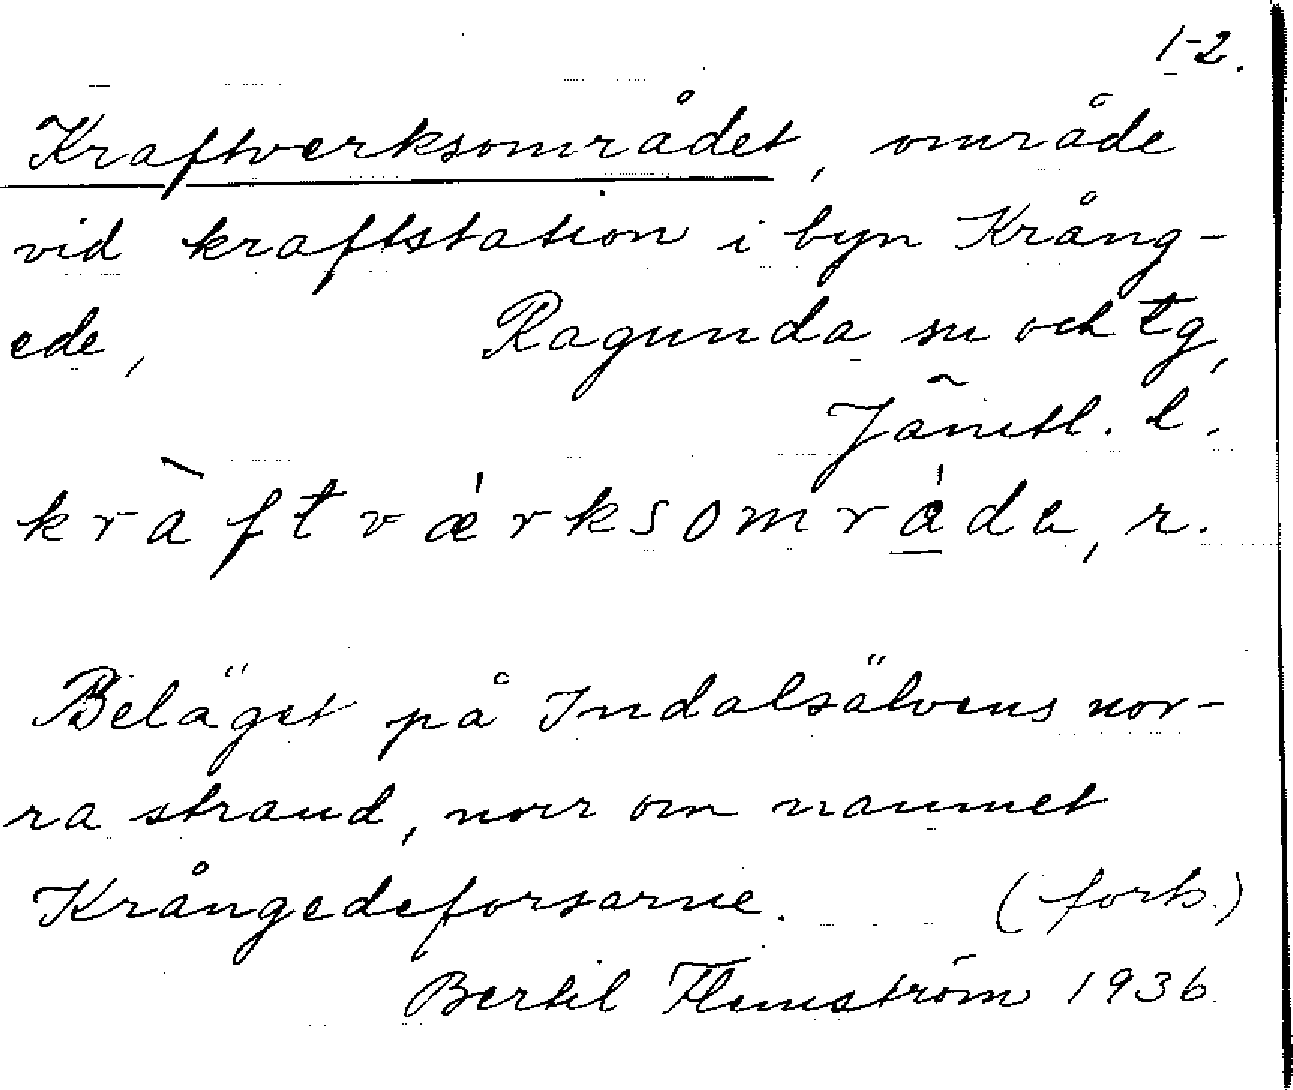 1-2.
Kraftverksområdet, område
vid kraftstation i byn Krång-
ede, Ragunda sn och tg,
Jämtl. l.
kràftvǽrksomrǻda, r.
Beläget på Indalsälvens nor-
ra strand, norr om namnet
Krångedeforsarne. (forts.)
Bertil Flemström 1936